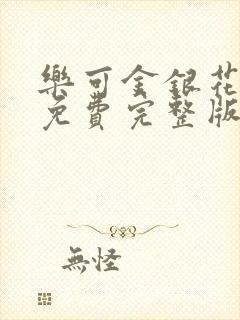 樂可金銀花
免費完整版
無怪